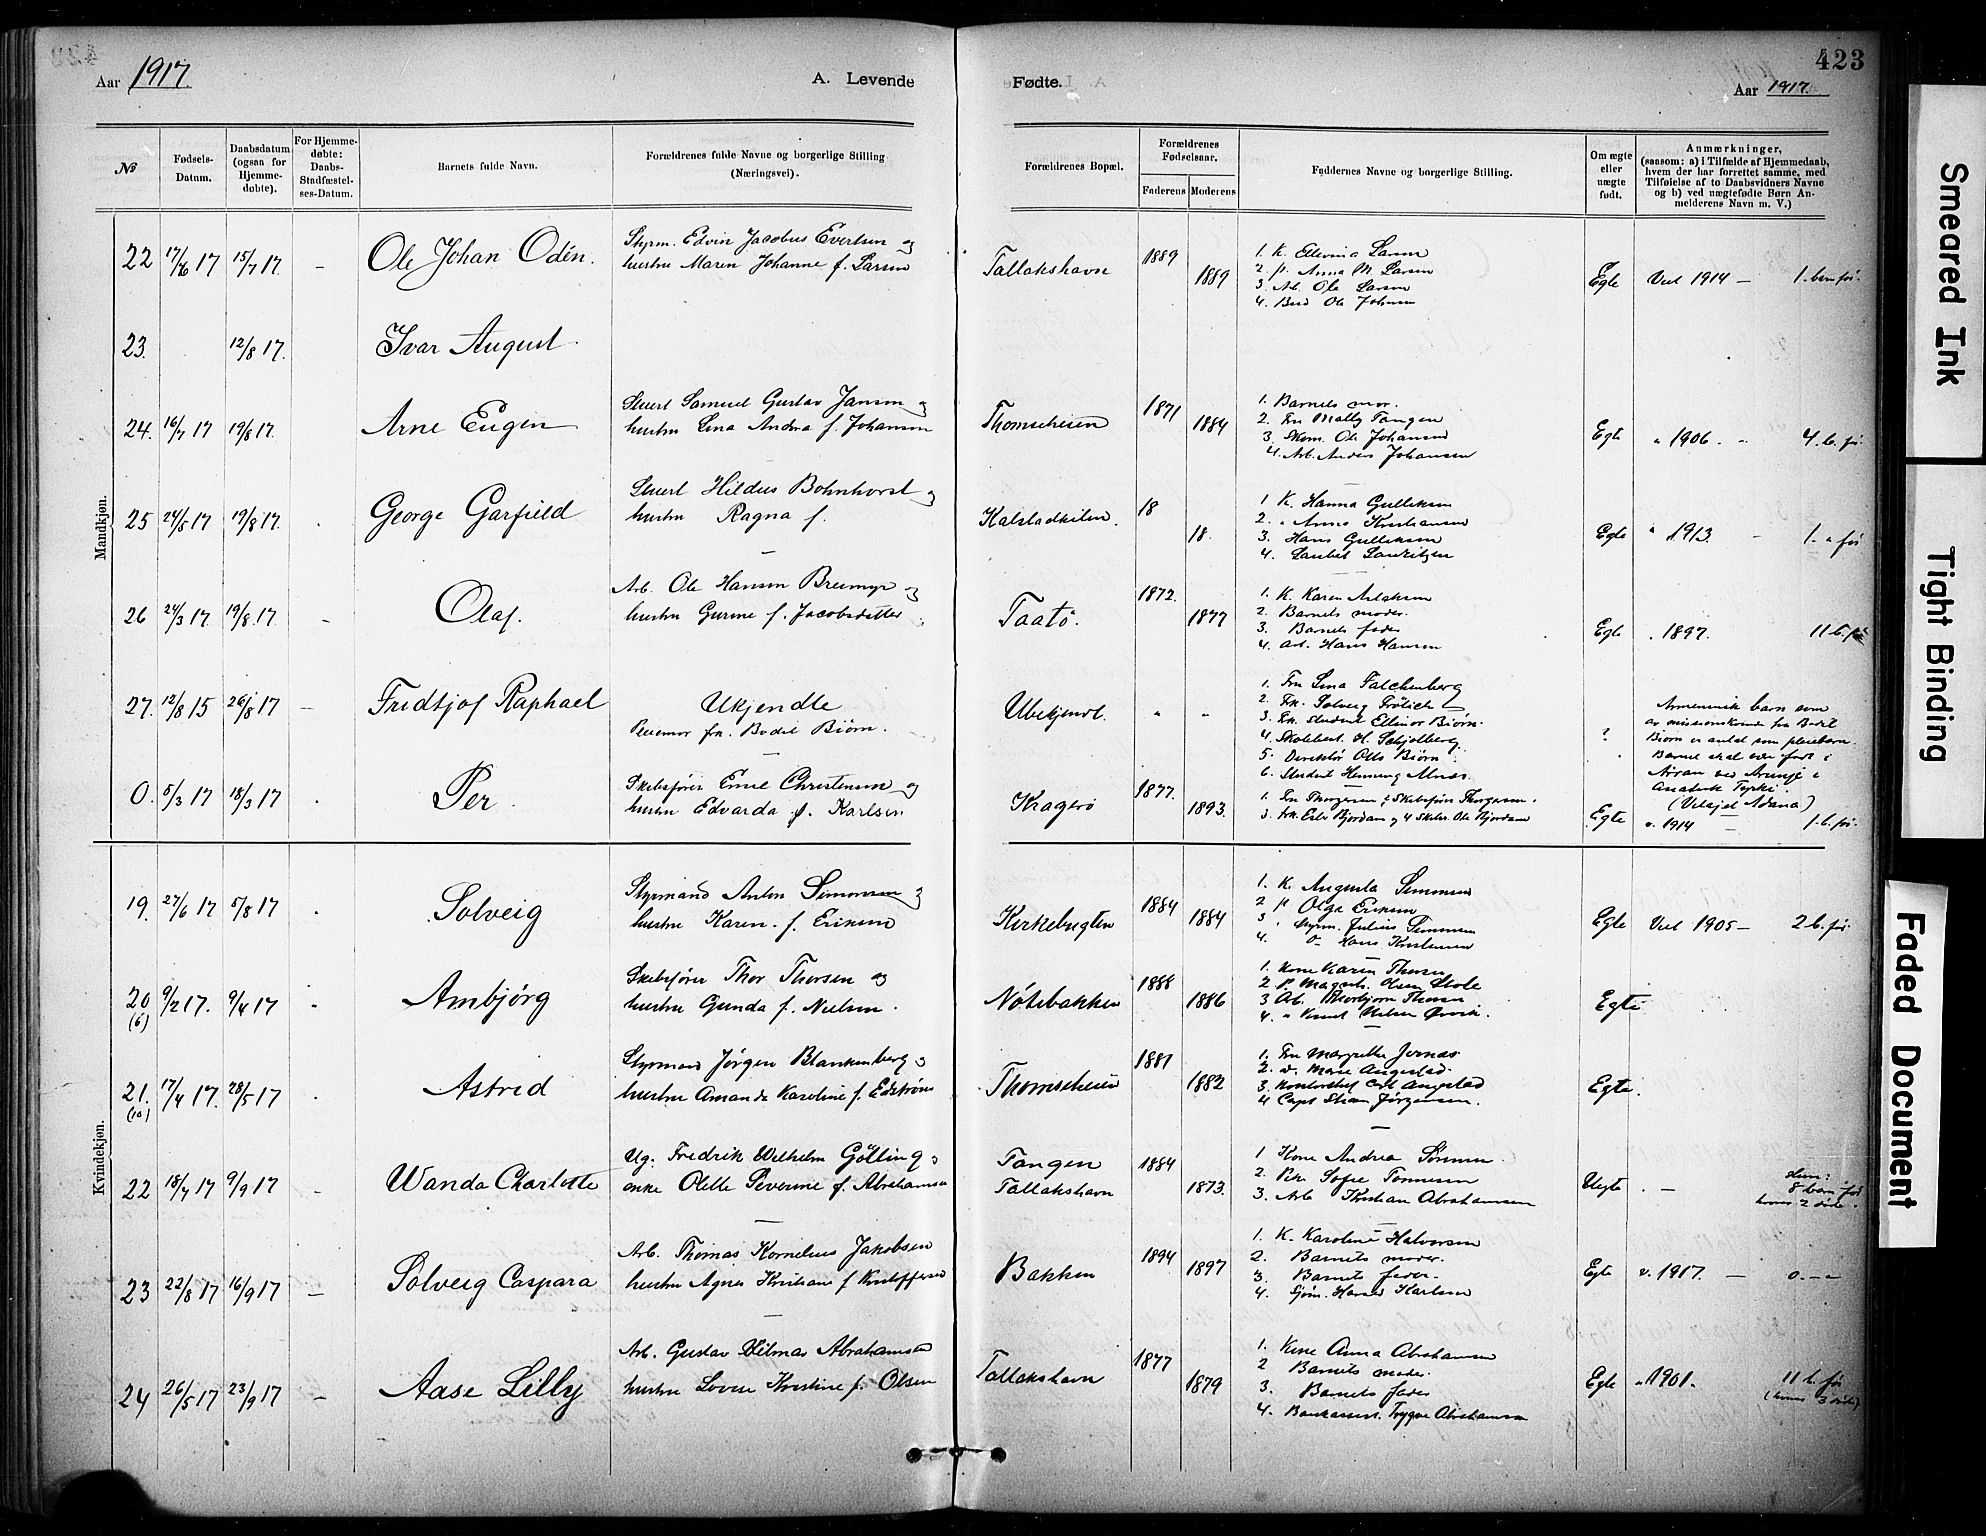 423
Aar 1917.
A. Levende
Fødte.
Aar 1917.
No
Fødsels-Datum.
Daabsdatum (ogsaa for Hjemmedøbte).
For Hjemmedøbte: Daabs-Stadfæstelses-Datum.
Barnets fulde Navn.
Forældrenes fulde Navne og borgerlige Stilling (Næringsvei).
Forældrenes Bopæl.
Forældrenes Fødselsaar.
Faderens
Moderens
Faddernes Navne og borgerlige Stilling.
Om ægte eller uægte født.
Anmærkninger, (saasom: a) i Tilfælde af Hjemmedaab, hvem der har forrettet samme, med Tilføielse af to Daabsvidners Navne og b) ved uægtefødte Børn Anmelderens Navn m. V.)
Mandkjøn.
22 17/6 17 15/7 17. – Ole Johan Odén.
Styrm. Edvin Jacobus Evertsen og
hustru Maren Johanne f. Larsen
Tallakshavn
1889
1889
1. K. Ellevina Larsen
2. p. Anna M. Larsen
3. Arb. Ole Larsen
4. Ole Johnsen
Egte
Viet 1914 – 1. barn før.
23. 12/8 17. Ivar August
24. 16/7 17 19/8 17. Arne Eugen
Stuert Samuel Gustav Jansen og
hustru Lina Andrea f. Johansen
Thomesheien
1871
1884
1. Barnets mor.
2. Fru Mally Tangen
3. Skom. Ole Johansen
4. Arb. Anders Johansen
Egte
" 1906. - 4. b. før.
25 24/5 17 19/8 17. George Garfield
Stuert Hildus Bohnhorst og
hustru Ragna f.
Kalstadkilen.
18
18.
1 K. Hanna Gulliksen
2. " Anna Kristiansen
3. Hans Gulliksen
4. Lauritzen
Egte
" 1913. - 1. " før
26 24/3 17. 19/8. 17 – Olaf.
Arb. Ole Hansen Breimyr og
hustru Gurine f. Jacobsdatter
Taatø.
1872.
1877
1. K. Karen Aslaksen
2. Barnets moder.
3. Barnets fader
4. arb. Hans Hansen
Egte
. 1897. 11 b. før
27. 12/8 15 26/8 17 – Fridtjof Raphael
Ukjendte
Pleiemor frk. Bodil Biørn.
Ubekjendt.
" "
1. Fru Lina Falchenberg
2. Frk. Solveig Frølich
3. Frk. student Ellinor Biørn.
4. Skolebest. H. Schjølberg.
5. Direktør Otto Biørn
6. Student Henning Alnæs.
?
Armensk barn som
av missionskvinde frk Bodil
Biørn er antat som pleiebarn.
Barnet skal være født i
Airan ved Arinje i
Asiatisk Tyrki.
(Vilajet Adana)
0. 5/3 17 18/3 17 Per.
Skibsfører Emil Christensen og
hustru Edvarda f. Karlsen
Kragerø
1877.
1893.
1. Fru Thorgersen 2 Skibsfører Thorgersen.
3. Frk. Bjordam og 4 Skibsr. Ole Bjordam
Egte
v. 1914 – 1. b. før.
Kvindekjøn.
19. 27/6 17 5/8 17 Solveig
Styrmand Anton Simonsen og
hustru Karen. f. Eriksen
Kirkebugten
1884
1884
1. K. Augusta Simonsen
2 p Olga Eriksen
3 Styrm. Julius Simonsen
4. Hans Kristensen
Egte
Viet 1905 – 2 b. før.
20 (6) 9/2 17. 9/4 17 Arnbjørg
Skibsfører Thor Thorsen og
hustru Gunda f. Nielsen.
Nøtebakken
1888
1886
1. Kone Karen Thorsen
2 p. Magnh. Olsen
3 Arb. Thorbjørn Thorsen
4. " Knut Nilsen Ørvik.
Egte
21. (10) 17/4 17. 28/5 17 Astrid
Styrmand Jørgen Blankenberg og
hustru Amanda Karoline f. Edstrøm
Thomesheien
1881
1882
1. Fru Margrethe Jernæs
2. v. Marie Angestad.
3. Kontorchef Carl Angestad
4 Capt Jørgensen.
Egte.
22 18/7 17 9/9 17 Wanda Charlotte
Ug. Fredrik Wilhelm Gølling og
enke Otelle Severine f. Abrahamsen
Tangen
Tallakshavn
1884
1873.
1 Kone Andrea
2. Pike Sofie Tønnesen
3. Arb Kristian Abrahamsen
Uegte
. –
Hun:
8 barn før
hvorav 2 døde.
23 22/8 17 16/9 17 – Solveig Caspara
Arb. Thomas Kornelius Jakobsen
hustru Agnes Kristiane f Kristoffersen
Bakken
1894
1897
1. K. Karoline Halvorsen
2. Barnets moder.
3. Barnets fader.
4. Sjøm. Harald Karlsen
Egte
v. 1917. – 0. –
24 26/5 17 23/9 17 – Aase Lilly
Arb. Gustav Vilmar Abrahamsen
hustru Lovise Kristine f. Olsen
Tallakshavn
1877
1879
1. Kone Anna Abrahamsen
2 Barnets moder.
3. Barnets fader
4. Bankassist. Trygve Abrahamsen
Egte
" 1901. 11 b. før
(hvorav 3 døde)
Smeared Ink
Tight Binding
Faded Document